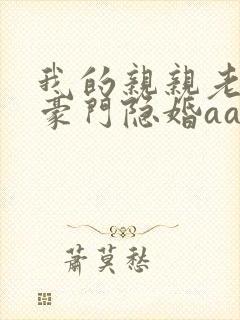 我的親親老
豪門隐婚aa
蕭莫愁